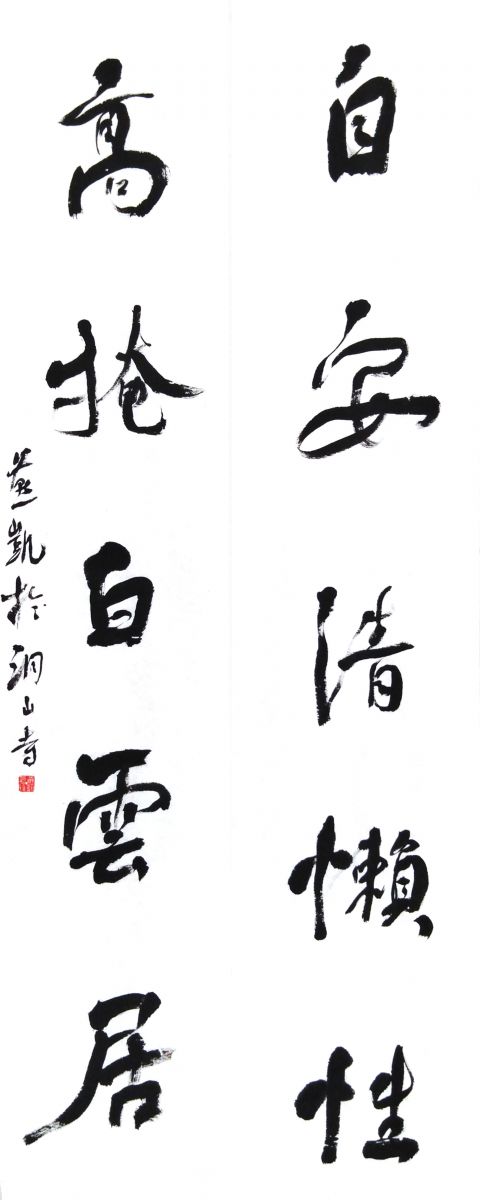 自安清懶性
高掩白雲居
燕凱於洞山寺